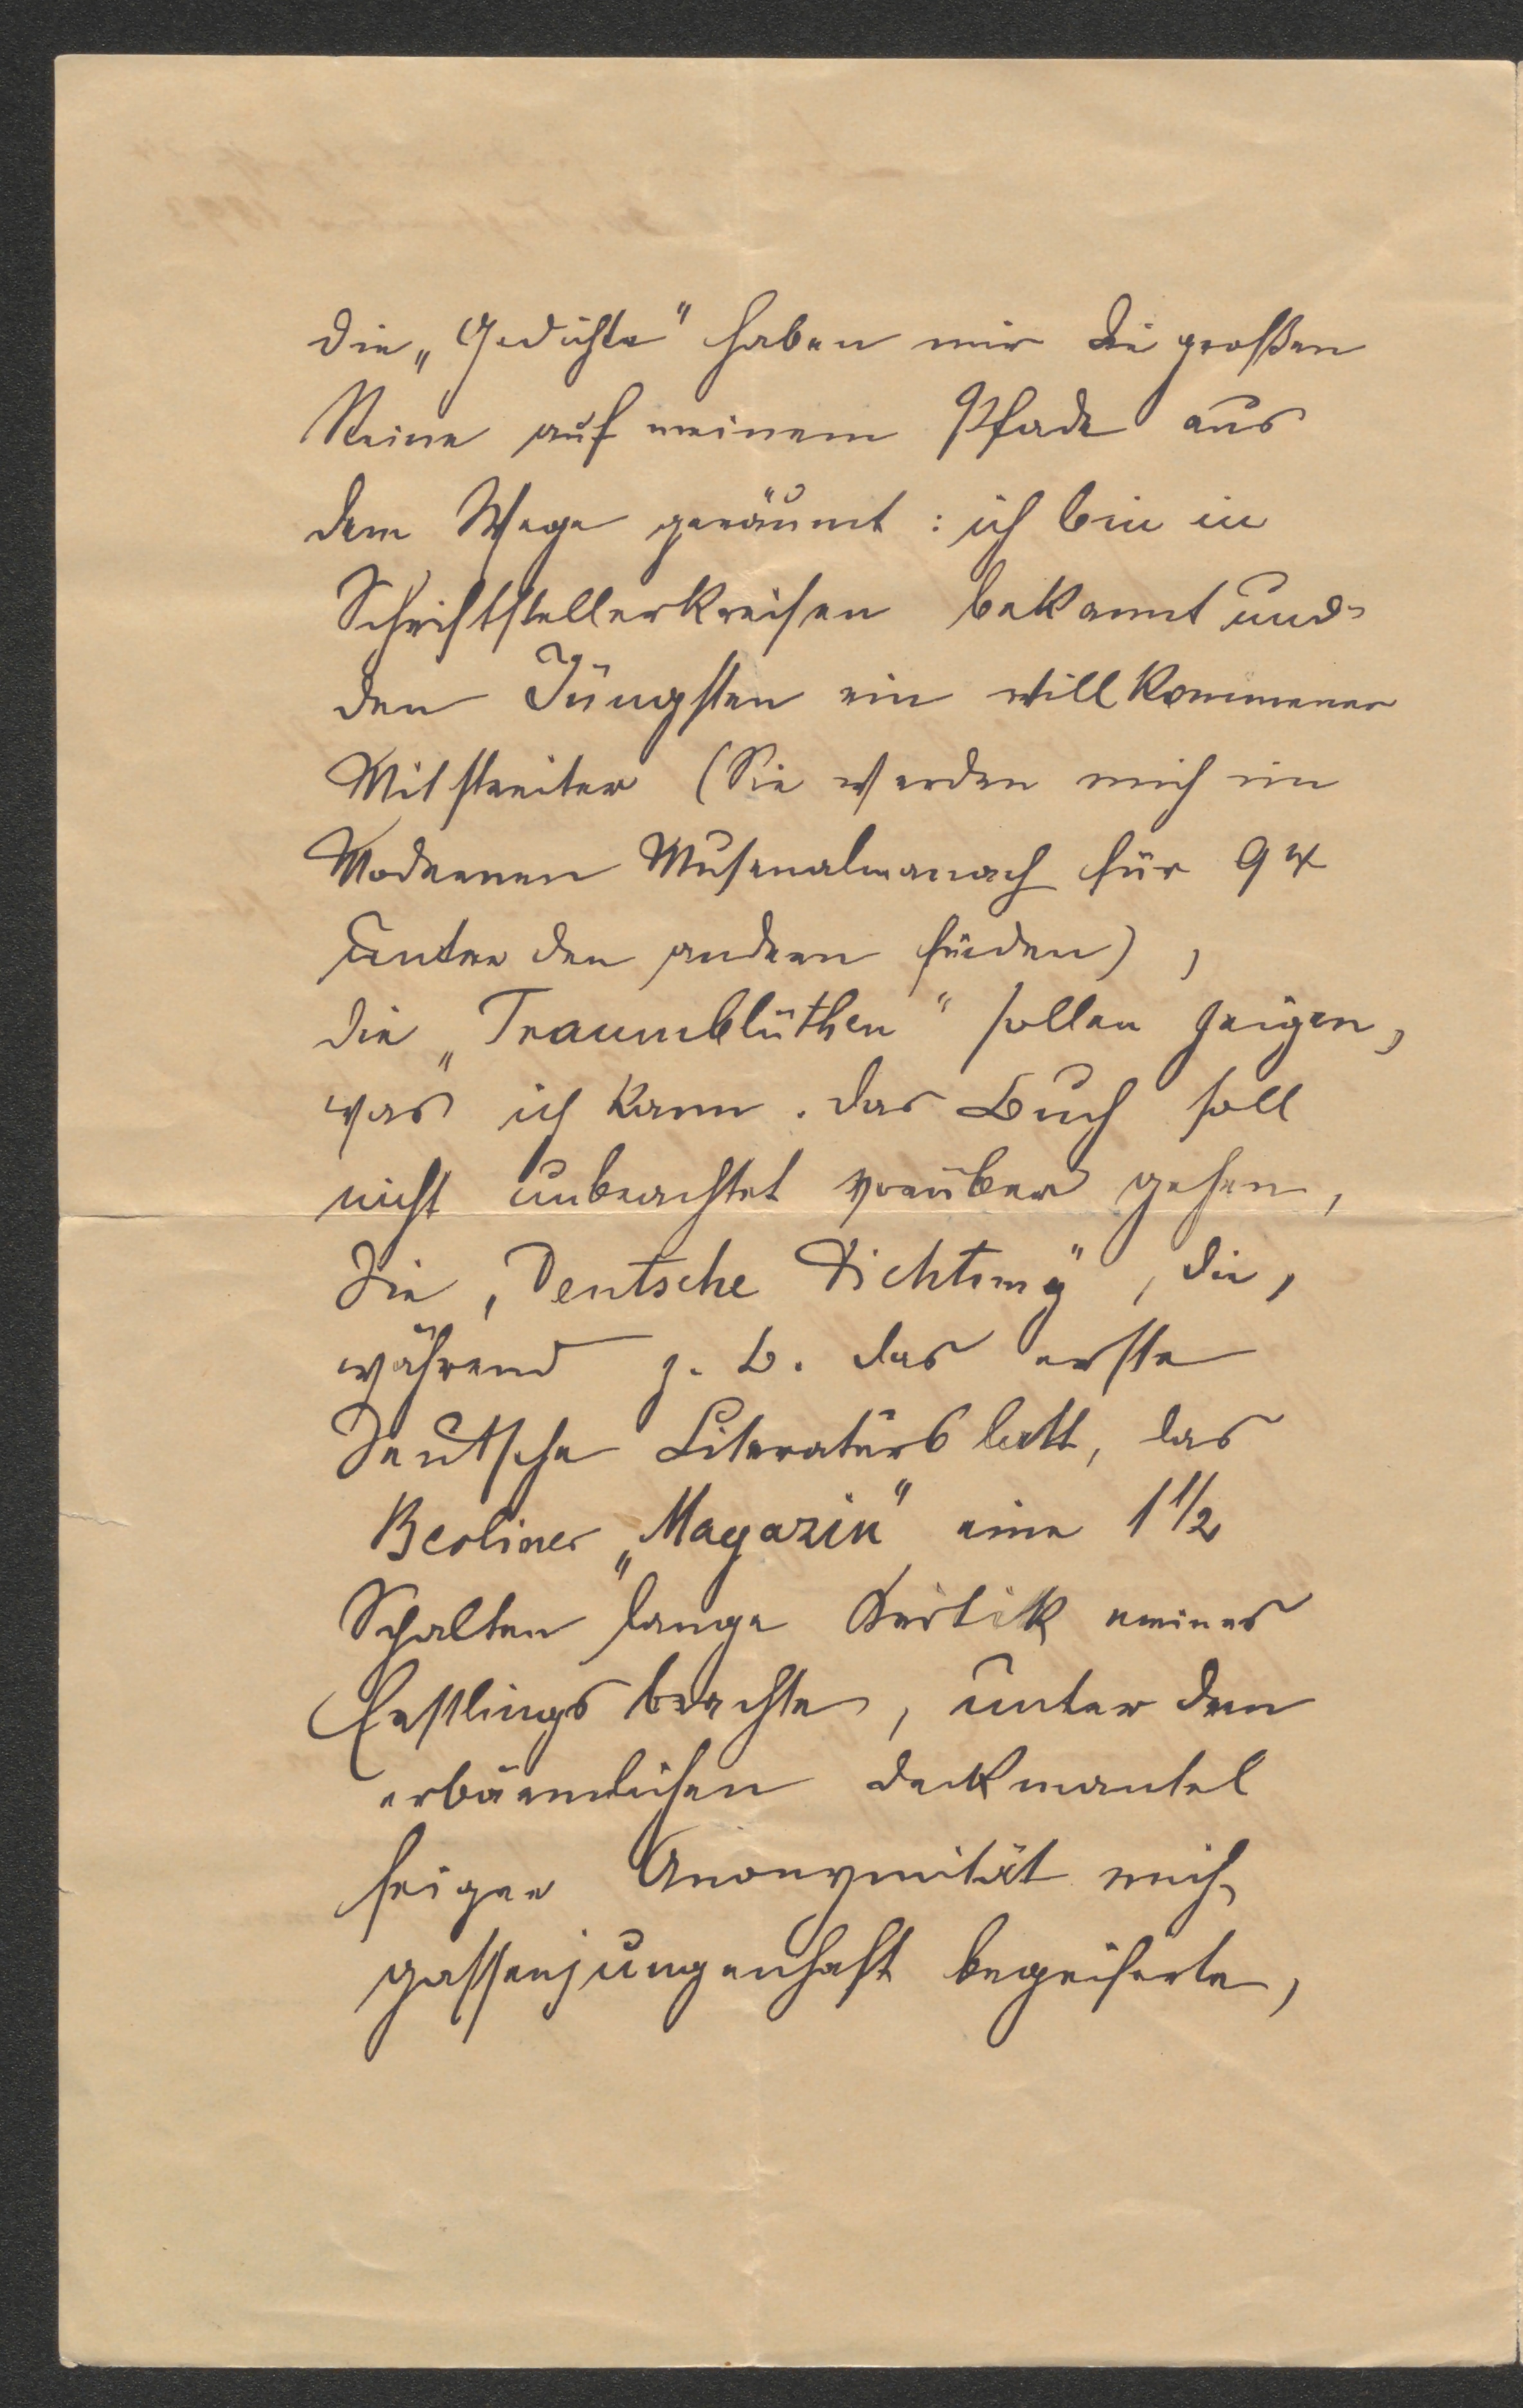 die „Gedichte" haben mir die großen
Steine auf meinem Pfade aus
dem Wege geräumt: ich bin in
Schriftstellerkreisen bekannt und
den Jüngsten ein willkommener
Mitstreiter (Sie werden mich im
Modernen Musenalmanach für 94
unter den andern finden),
die „Traumblüthen" sollen zeigen,
was ich kann. Das Buch soll
nicht unbeachtet vorüber gehen,
Die „Deutsche Dichtung", die,
während z. B. das erste
Deutsche Literaturblatt, das
Berliner „Magazin" eine 1 1/2
Spalten lange Kritik meines
Erstlings brachte, unter dem
erbärmlichen Deckmantel
feiger Anonymität mich
gassenjungenhaft begeiferte,